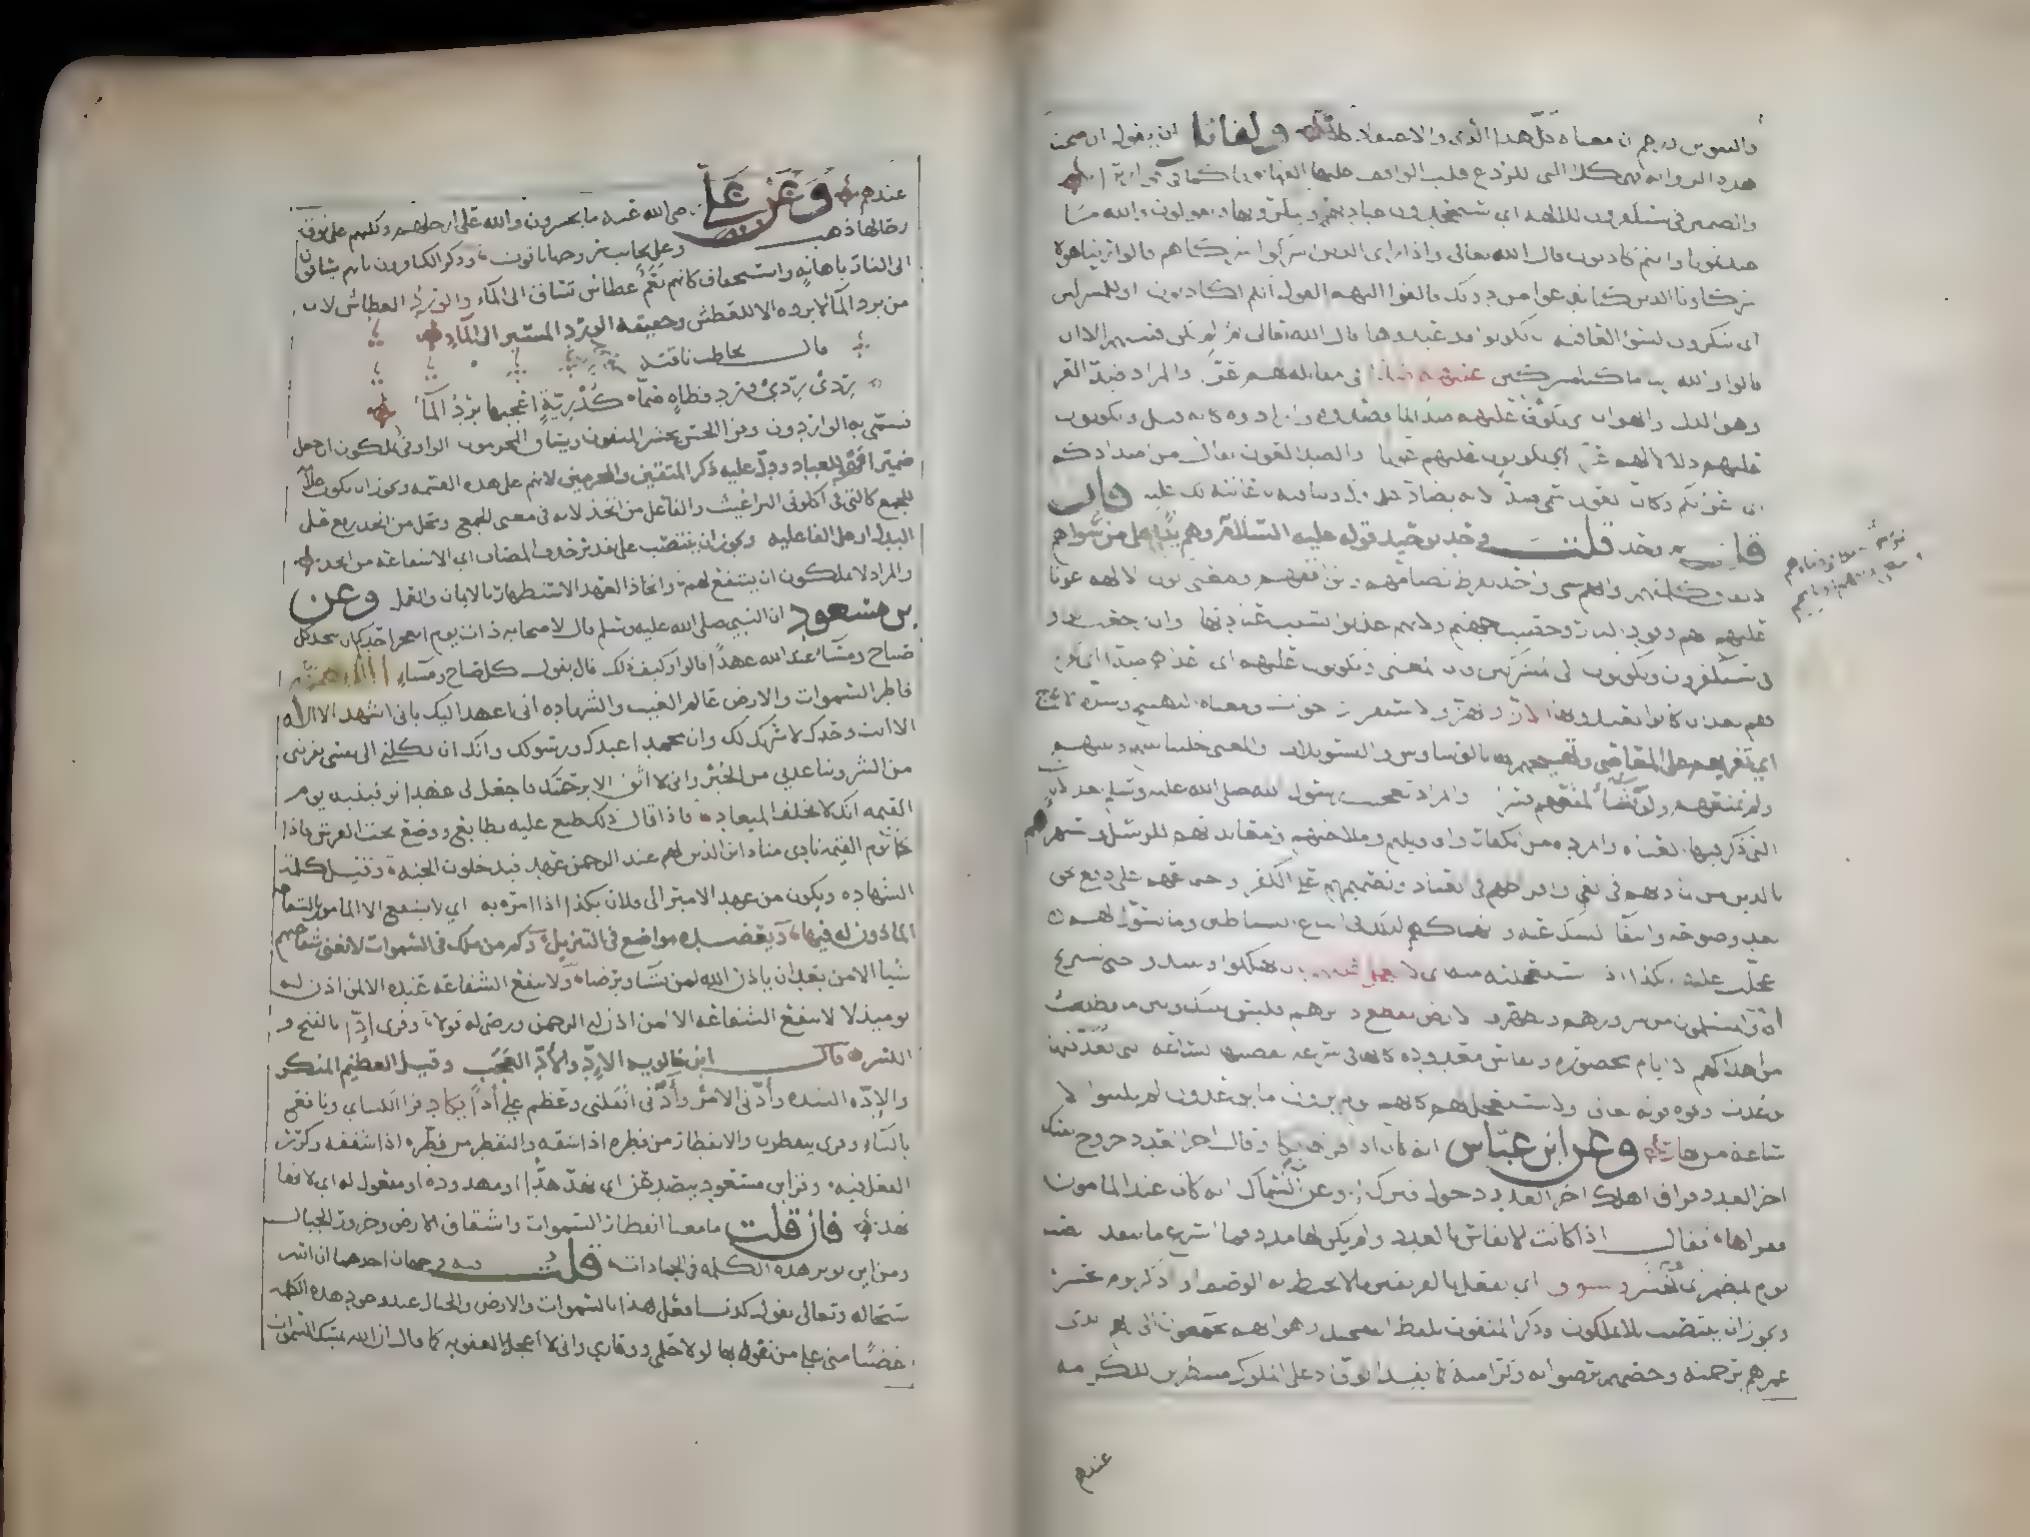 والتنوين لزعم ان معناه كل هذا الرأي والاعتقاد كلا ولقائل ان يقول ان صحت
هذه الرواية فهي كلا التي للردع قلب الواقف عليها الفها نونا كما في قواريرا
والضمير في سيكفرون للآلهة اي سيجحدون عبادتهم وينكرونها ويقولون والله ما
عبدتمونا وانتم كاذبون قال الله تعالى واذا راى الذين اشركوا شركاهم قالوا ربنا هولا
شركاونا الذين كنا ندعوا من دونك فالقوا اليهم القول انكم لكاذبون او للمشركين
اي ينكرون لسوء العاقبة ان يكونوا قد عبدوها قال الله تعالى ثم لم تكن فتنتهم الا ان
قالوا والله ربنا ما كنا مشركين عليهم ضدا في مقابلة لهم عزا والمراد ضد العز
وهو الذل والهوان اي يكونون عليهم ضدا لما قصدوه وارادوه كانه قيل ويكونون
عليهم ذلا لا لهم عزا او يكونون عليهم عونا والضد العون يقال من اضدادكم
اي اعوانكم وكان العون سمي ضدا لانه يضاد عدوك وينافيه باعانته لك عليه فان
قلت لم وحد قلت وحد توحيد قوله عليه السلام وهم يد على من سواهم
لاتفاق كلمتهم وانهم كشي واحد لفرط تضامهم وتوافقهم ومعنى كون الآلهة عونا
عليهم انهم وقود النار وحصب جهنم ولانهم عذبوا بسبب عبادتها وان جعلت الواو
في سيكفرون ويكونون للمشركين فان المعنى ويكونون عليهم اي اعداهم ضدا اي كفرة
بهم بعد ان كانوا يعبدونها الاز والهز والاستفزاز اخوات ومعناه التهييج وشدة الازعاج
اي تغريهم على المعاصي وتهيجهم لها بالوساوس والتسويلات والمعنى خلينا بينهم وبينهم
ولم نمنعهم ولو شئنا لمنعهم قسرا والمراد تعجيب رسول الله صلى الله عليه وسلم بعد الآيات
التي ذكر فيها العتاة والمردة من الكفار واقاويلهم وملاحتهم ومعاندتهم للرسل واستهزاهم
بالدين من تماديهم في الغي وافراطهم في العناد وتصميمهم على الكفر واجتماعهم على دفع الحق
بعد وضوحه وانتفا الشك عنه وانهماكهم لذلك في اتباع الشياطين وما تسول لهم
عجلت عليه بكذا اذا استعجلته منه اي لا تعجل عليهم بان يهلكوا ويبيدوا حتى تستريح
انت والمسلمون من شرورهم وتطهر الارض بقطع دابرهم فليس بينك وبين ما تطلب
من هلاكهم الا ايام محصورة وانفاس معدودة كانها في سرعة تقضيها الساعة التي تعد فيها
لو عدت ونحوه قوله تعالى ولا تستعجل لهم كانهم يوم يرون ما يوعدون لم يلبثوا الا
ساعة من نهار وعن ابن عباس انه كان اذا قراها بكى وقال اخر العدد خروج نفسك
اخر العدد فراق اهلك اخر العدد دخول قبرك وعن ابن السماك انه كان عند المامون
فقراها فقال اذا كانت الانفاس بالعدد ولم يكن لها مدد فما اسرع ما تنفد نصب
يوم بمضمر اي يوم نحشر ونسوق اي نفعل بالفريقين ما لا يحيط به الوصف او اذكر يوم نحشر
ويجوز ان ينتصب بلا يملكون وذكر المتقون بلفظ التبجيل وهو انهم يجمعون الى ربهم الذي
غمرهم برحمته وخصهم برضوانه وكرامته كما يفد الوفاد على الملوك منتظرين للكرامة
عندهم
عندهم وعن علي رضي الله عنه ما يحشرون والله على ارجلهم ولكنهم على نوق
رحالها ذهب وعلى نجايب سروجها ياقوت وذكر الكافرون بانهم يساقون
الى النار باهانة واستخفاف كانهم نعم عطاش تساق الى الماء والورد العطاش لان
من يرد الماء لا يرده الا للعطش وحقيقة الورد المسير الى الماء
قال يخاطب ناقته
ردي ردي ورد قطاة صما كدرية اعجبها برد الما
فسمي به الواردون وقرا الحسن يحشر المتقون ويساق المجرمون الواو في يملكون ان جعل
ضميرا فهو للعباد ودل عليه ذكر المتقين والمجرمين لانهم على هذه القسمة ويجوز ان يكون علامة
للجمع كالتي في اكلوني البراغيث والفاعل من اتخذ لانه في معنى الجمع ومحل من اتخذ رفع على
البدل او على الفاعلية ويجوز ان ينتصب على تقدير حذف المضاف اي الا شفاعة من اتخذ
والمراد لا يملكون ان يشفع لهم واتخاذ العهد الاستظهار بالايمان والعمل وعن
بن مسعود ان النبي صلى الله عليه وسلم قال لاصحابه ذات يوم ايعجز احدكم ان يتخذ كل
صباح ومساء عند الله عهدا قالوا وكيف ذلك قال يقول كل صباح ومساء اللهم
فاطر السموات والارض عالم الغيب والشهادة اني اعهد اليك باني اشهد ان لا اله
الا انت وحدك لا شريك لك وان محمدا عبدك ورسولك وانك ان تكلني الى نفسي تقربني
من الشر وتباعدني من الخير واني لا اثق الا برحمتك فاجعل لي عهدا توفينيه يوم
القيمة انك لا تخلف الميعاد فاذا قال ذلك طبع عليه بطابع ووضع تحت العرش فاذا
كان يوم القيمة نادى مناد اين الذين لهم عند الرحمن عهد فيدخلون الجنة وقيل كلمة
الشهادة ويكون من عهد الامير الى فلان بكذا اذا امره به اي لا يشفع الا المامور بالشفاعة
الماذون له فيها ويعضده مواضع في التنزيل وكم من ملك في السموات لا تغني شفاعتهم
شيا الا من بعد ان ياذن الله لمن يشا ويرضاه ولا تنفع الشفاعة عنده الا لمن اذن له
يوميذ لا تنفع الشفاعة الا من اذن له الرحمن ورضي له قولا وقرى ادا بالفتح و
الكسر قال ابن خالويه الاد والاد العجب وقيل العظيم المنكر
والادة الشدة وادني الامر وآدني اثقلني وعظم علي ادا يكاد قرا الكساي ونافع
بالياء وقرى ينفطرن والانفطار من فطره اذا شقه والتفطر من فطره اذا شققه وكرر
الفعل فيه وقرا بن مسعود يتصدعن اي تهد هدا او مهدودة او مفعول له اي لانها
تهد فان قلت ما معنا انفطار السموات وانشقاق الارض وخرور الجبال
ومن اين توثر هذه الكلمة في الجمادات قلت فيه وجهان احدهما ان الله
سبحانه وتعالى يقول كدت افعل هذا بالسموات والارض والجبال عند وجود هذه الكلمة
غضبا مني على من تفوه بها لولا حلمي ووقاري واني لا اعجل بالعقوبة كما قال ان الله يمسك السموات